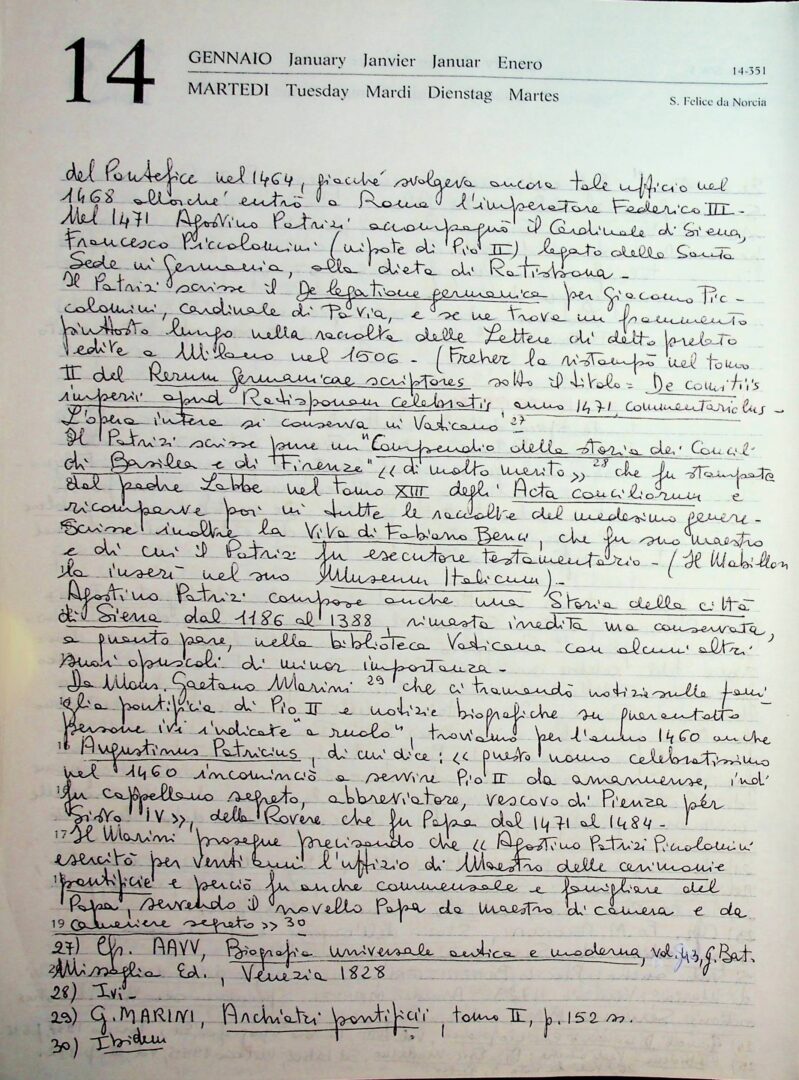 14
GENNAIO January Janvier Januar Enero
14-351
MARTEDI Tuesday Mardi Dienstag Martes
S. Felice da Norcia
del Pontefice nel 1464, giacché svolgeva ancora tale ufficio nel
1468 allorché entrò a Roma l'imperatore Federico III.-
Nel 1471 Agostino Patrizi accompagnò il Cardinale di Siena,
Francesco Piccolomini (nipote di Pio II), legato della Santa
Sede in Germania, alla dieta di Ratisbona.-
Il Patrizi scrisse il De legatione germanica per Giacomo Pic-
colomini, cardinale di Pavia, e se ne trova un frammento
piuttosto lungo nella raccolta delle Lettere di detto prelato
edite a Milano nel 1506 - (Freher la ristampò nel tomo
II del Rerum Germanicae scriptores sotto il titolo = De comitiis
imperii apud Ratisponam celebratis, anno 1471, commentariolus -
L'opera intera si conserva in Vaticano 27
Il Patrizi scrisse pure un "Compendio della storia dei Concili
di Basilea e di Firenze" << di molto merito >> 28 che fu stampata
dal padre Labbe nel tomo XIII degli Acta conciliorum e
ricomparve poi in tutte le raccolte del medesimo genere.-
Scrisse inoltre la Vita di Fabiano Benci, che fu suo maestro
e di cui il Patrizi fu esecutore testamentario - (Il Mabillon
la inserì nel suo Museum Italicum).-
Agostino Patrizi compose anche una Storia della città
di Siena dal 1186 al 1388, rimasta inedita ma conservata,
a quanto pare, nella biblioteca Vaticana con alcuni altri
suoi opuscoli di minor importanza.-
Da Mons. Gaetano Marini 29 che ci tramandò notizie sulla fami
glia pontificia di Pio II e notizie biografiche su quarantatto
persone ivi indicate "a ruolo", troviamo per l'anno 1460 anche
16 Augustinus Patricius, di cui dice: << questo uomo celebratissimo
nel 1460 incominciò a servire Pio II da amanuense, indi
fu cappellano segreto, abbreviatore, vescovo di Pienza per
Sisto IV >>, della Rovere che fu Papa dal 1471 al 1484.-
17 Il Marini prosegue precisando che << Agostino Patrizi Piccolomini
esercitò per venti anni l'uffizio di Maestro delle cerimonie
pontificie e perciò fu anche commensale e famigliare del
Papa, servendo il novello Papa da maestro di camera e da
19 cameriere segreto >> 30
27) Cfr. AAVV, Biografia universale antica e moderna, vol. 43, G. Bat.
Missaglia Ed., Venezia 1828
28) Ivi -
29) G. MARINI, Archiatri pontificii, tomo II, p. 152 ss.
30) Ibidem